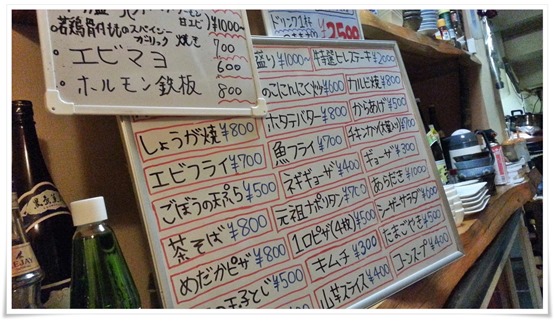 甘エビ ¥1000
若鶏骨付もものスパイシー
ガーリック焼き 700
・エビマヨ 600
・ホルモン鉄板 800
ドリンク1杯
¥2500
盛り ¥1000〜
特選ヒレステーキ ¥2000
きのこにんにく炒め ¥600
カルビ焼 ¥800
しょうが焼 ¥800
ホタテバター ¥800
からあげ ¥500
エビフライ ¥700
魚フライ ¥700
チキンカツ(大葉入り) ¥700
ごぼうの天ぷら ¥500
ネギギョーザ ¥400
ギョーザ ¥300
茶そば ¥800
元祖ナポリタン ¥700
あらだき ¥1000
めだかピザ ¥800
1口ピザ(4枚) ¥500
シーザーサラダ ¥600
玉子とじ ¥500
キムチ ¥300
たまごやき ¥500
山芋スライス ¥400
コーンスープ ¥400